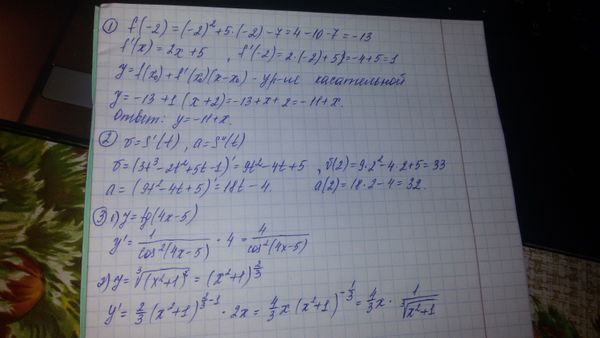 ① f(-2)=(-2)²+5·(-2)-7=4-10-7=-13
f'(x)=2x+5, f'(-2)=2·(-2)+5=-4+5=1
y=f(x₀)+f'(x₀)(x-x₀) - ур-ие касательной
y=-13+1(x+2)=-13+x+2=-11+x.
Ответ: y=-11+x.
② υ=S'(t), a=S''(t)
υ=(3t³-2t²+5t-1)'=9t²-4t+5, υ(2)=9·2²-4·2+5=33
a=(9t²-4t+5)'=18t-4. a(2)=18·2-4=32.
③ 1) y=tg(4x-5)
y'=1/cos²(4x-5)·4=4/cos²(4x-5)
2) y=∛(x²+1)²=(x²+1)^(2/3)
y'=2/3(x²+1)^(2/3-1)·2x=4/3x(x²+1)^(-1/3)=4/3x·1/∛(x²+1)